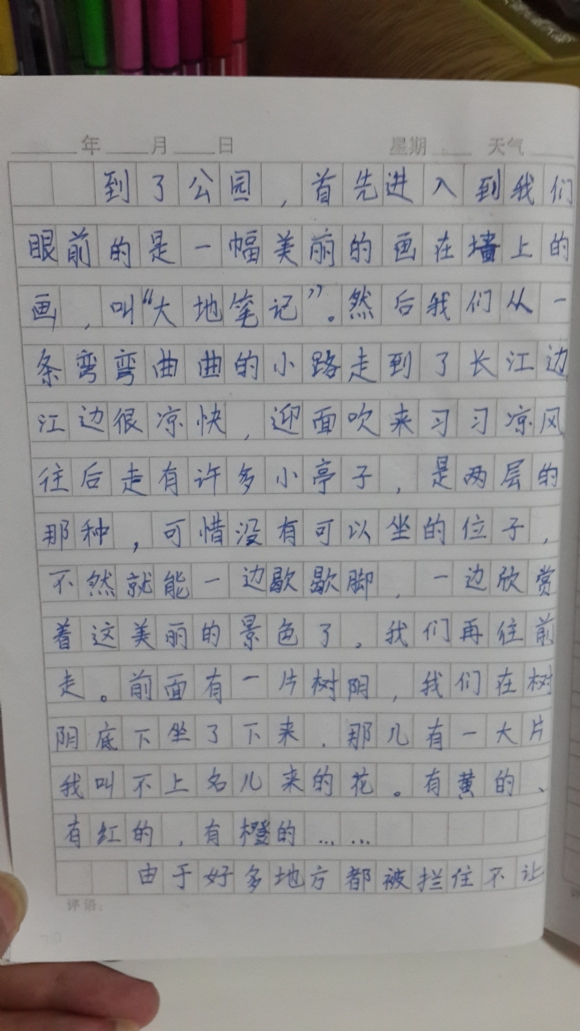 年 月 日 星期 天气
到了公园，首先进入到我们
眼前的是一幅美丽的画在墙上的
画，叫“大地笔记”。然后我们从一
条弯弯曲曲的小路走到了长江边
江边很凉快，迎面吹来习习凉风
往后走有许多小亭子，是两层的
那种，可惜没有可以坐的位子，
不然就能一边歇歇脚，一边欣赏
着这美丽的景色了。我们再往前
走。前面有一片树阴，我们在树
阴底下坐了下来．那儿有一大片
我叫不上名儿来的花。有黄的、
有红的，有橙的……
由于好多地方都被拦住不让
评语：